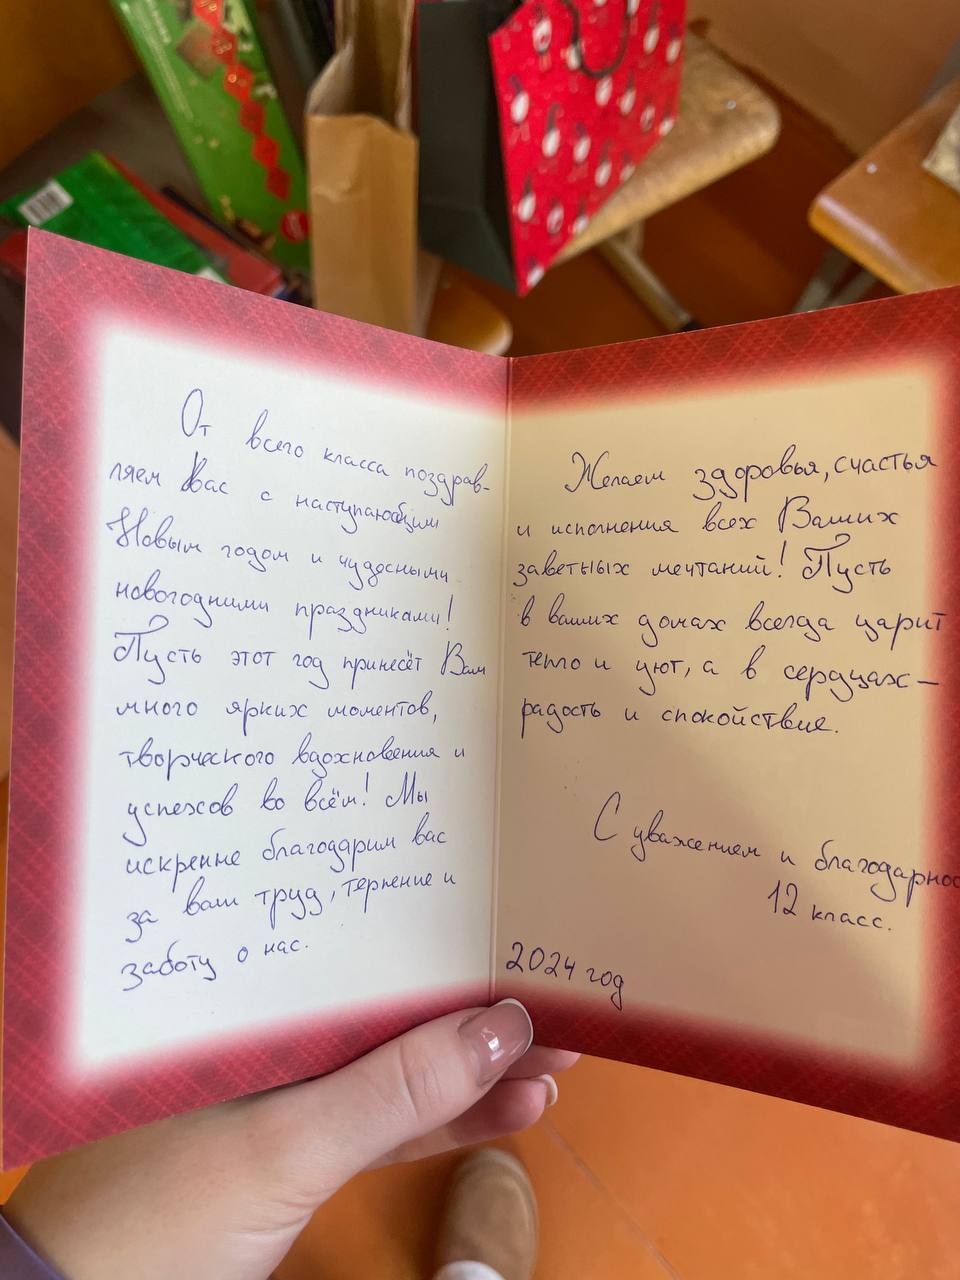 От всего класса поздрав-
ляем Вас с наступающим
Новым годом и чудесными
новогодними праздниками!
Пусть этот год принесёт Вам
много ярких моментов,
творческого вдохновения и
успехов во всём! Мы
искренне благодарим вас
за ваш труд, терпение и
заботу о нас.
Желаем здоровья, счастья
и исполнения всех Ваших
заветных мечтаний! Пусть
в ваших домах всегда царит
тепло и уют, а в сердцах–
радость и спокойствие.
С уважением и благодарнос
12 класс.
2024 год